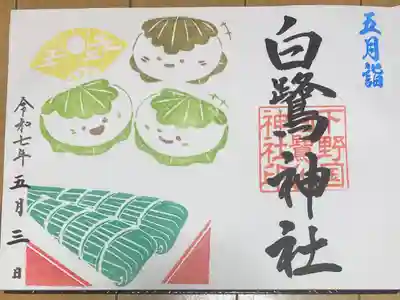 五月詣
白鷺神社
下野国
白鷺
神社印
令和七年五月三日